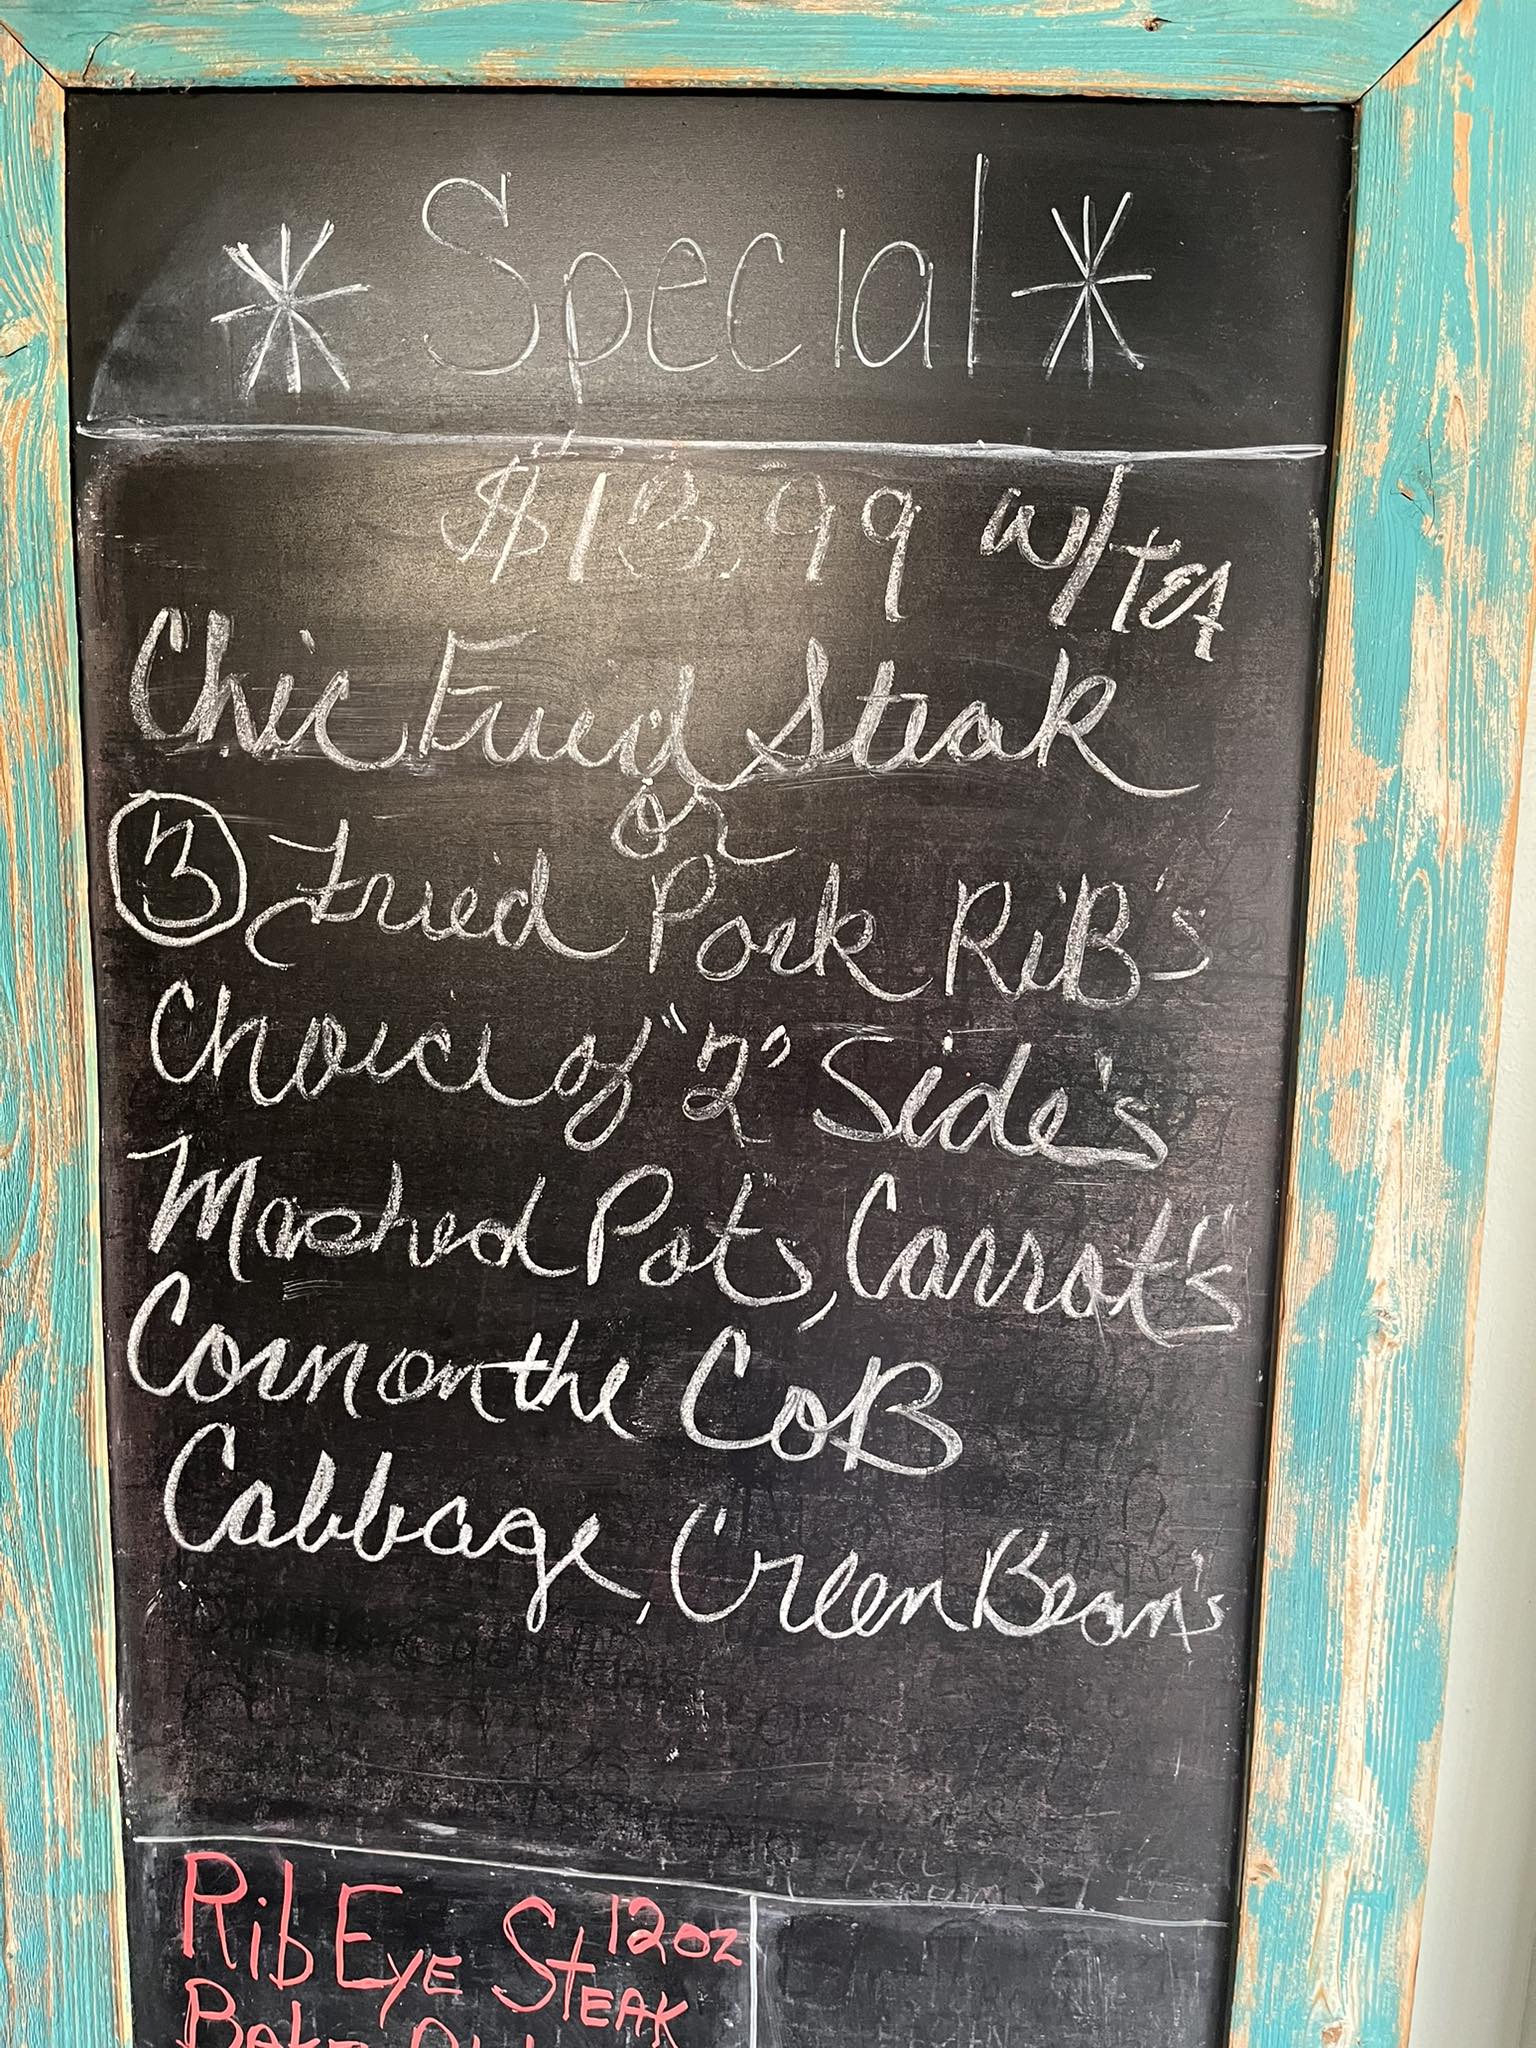 * Special *
$13.99 w/TEA
Chic Fried Steak
or
3 Fried Pork RiB's
Choice of "2" Side's
Mashed Pots, Carrot's
Corn on the CoB
Cabbage, Green Bean's
Rib Eye Steak 12oz